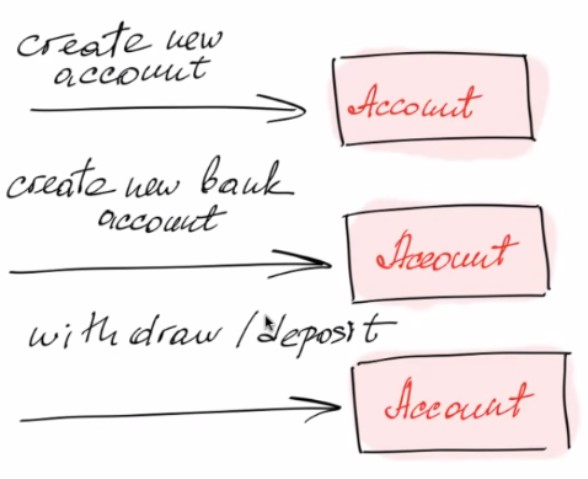 create new
account
Account
create new bank
account
Account
withdraw / deposit
Account